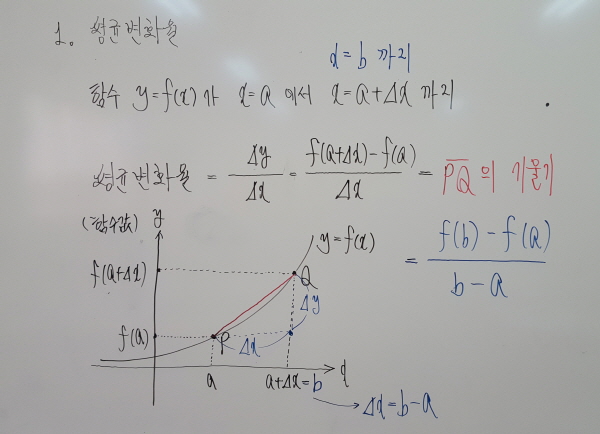 1. 평균변화율
x=b 까지
함수 y=f(x)가 x=a 에서 x=a+Δx 까지
평균변화율 = Δy/Δx = f(a+Δx)-f(a)/Δx = PQ의 기울기
= f(b)-f(a)/b-a
(함수값) y
y=f(x)
f(a+Δx)
Q
Δy
f(a)
P
Δx
a
a+Δx=b
x
Δx=b-a